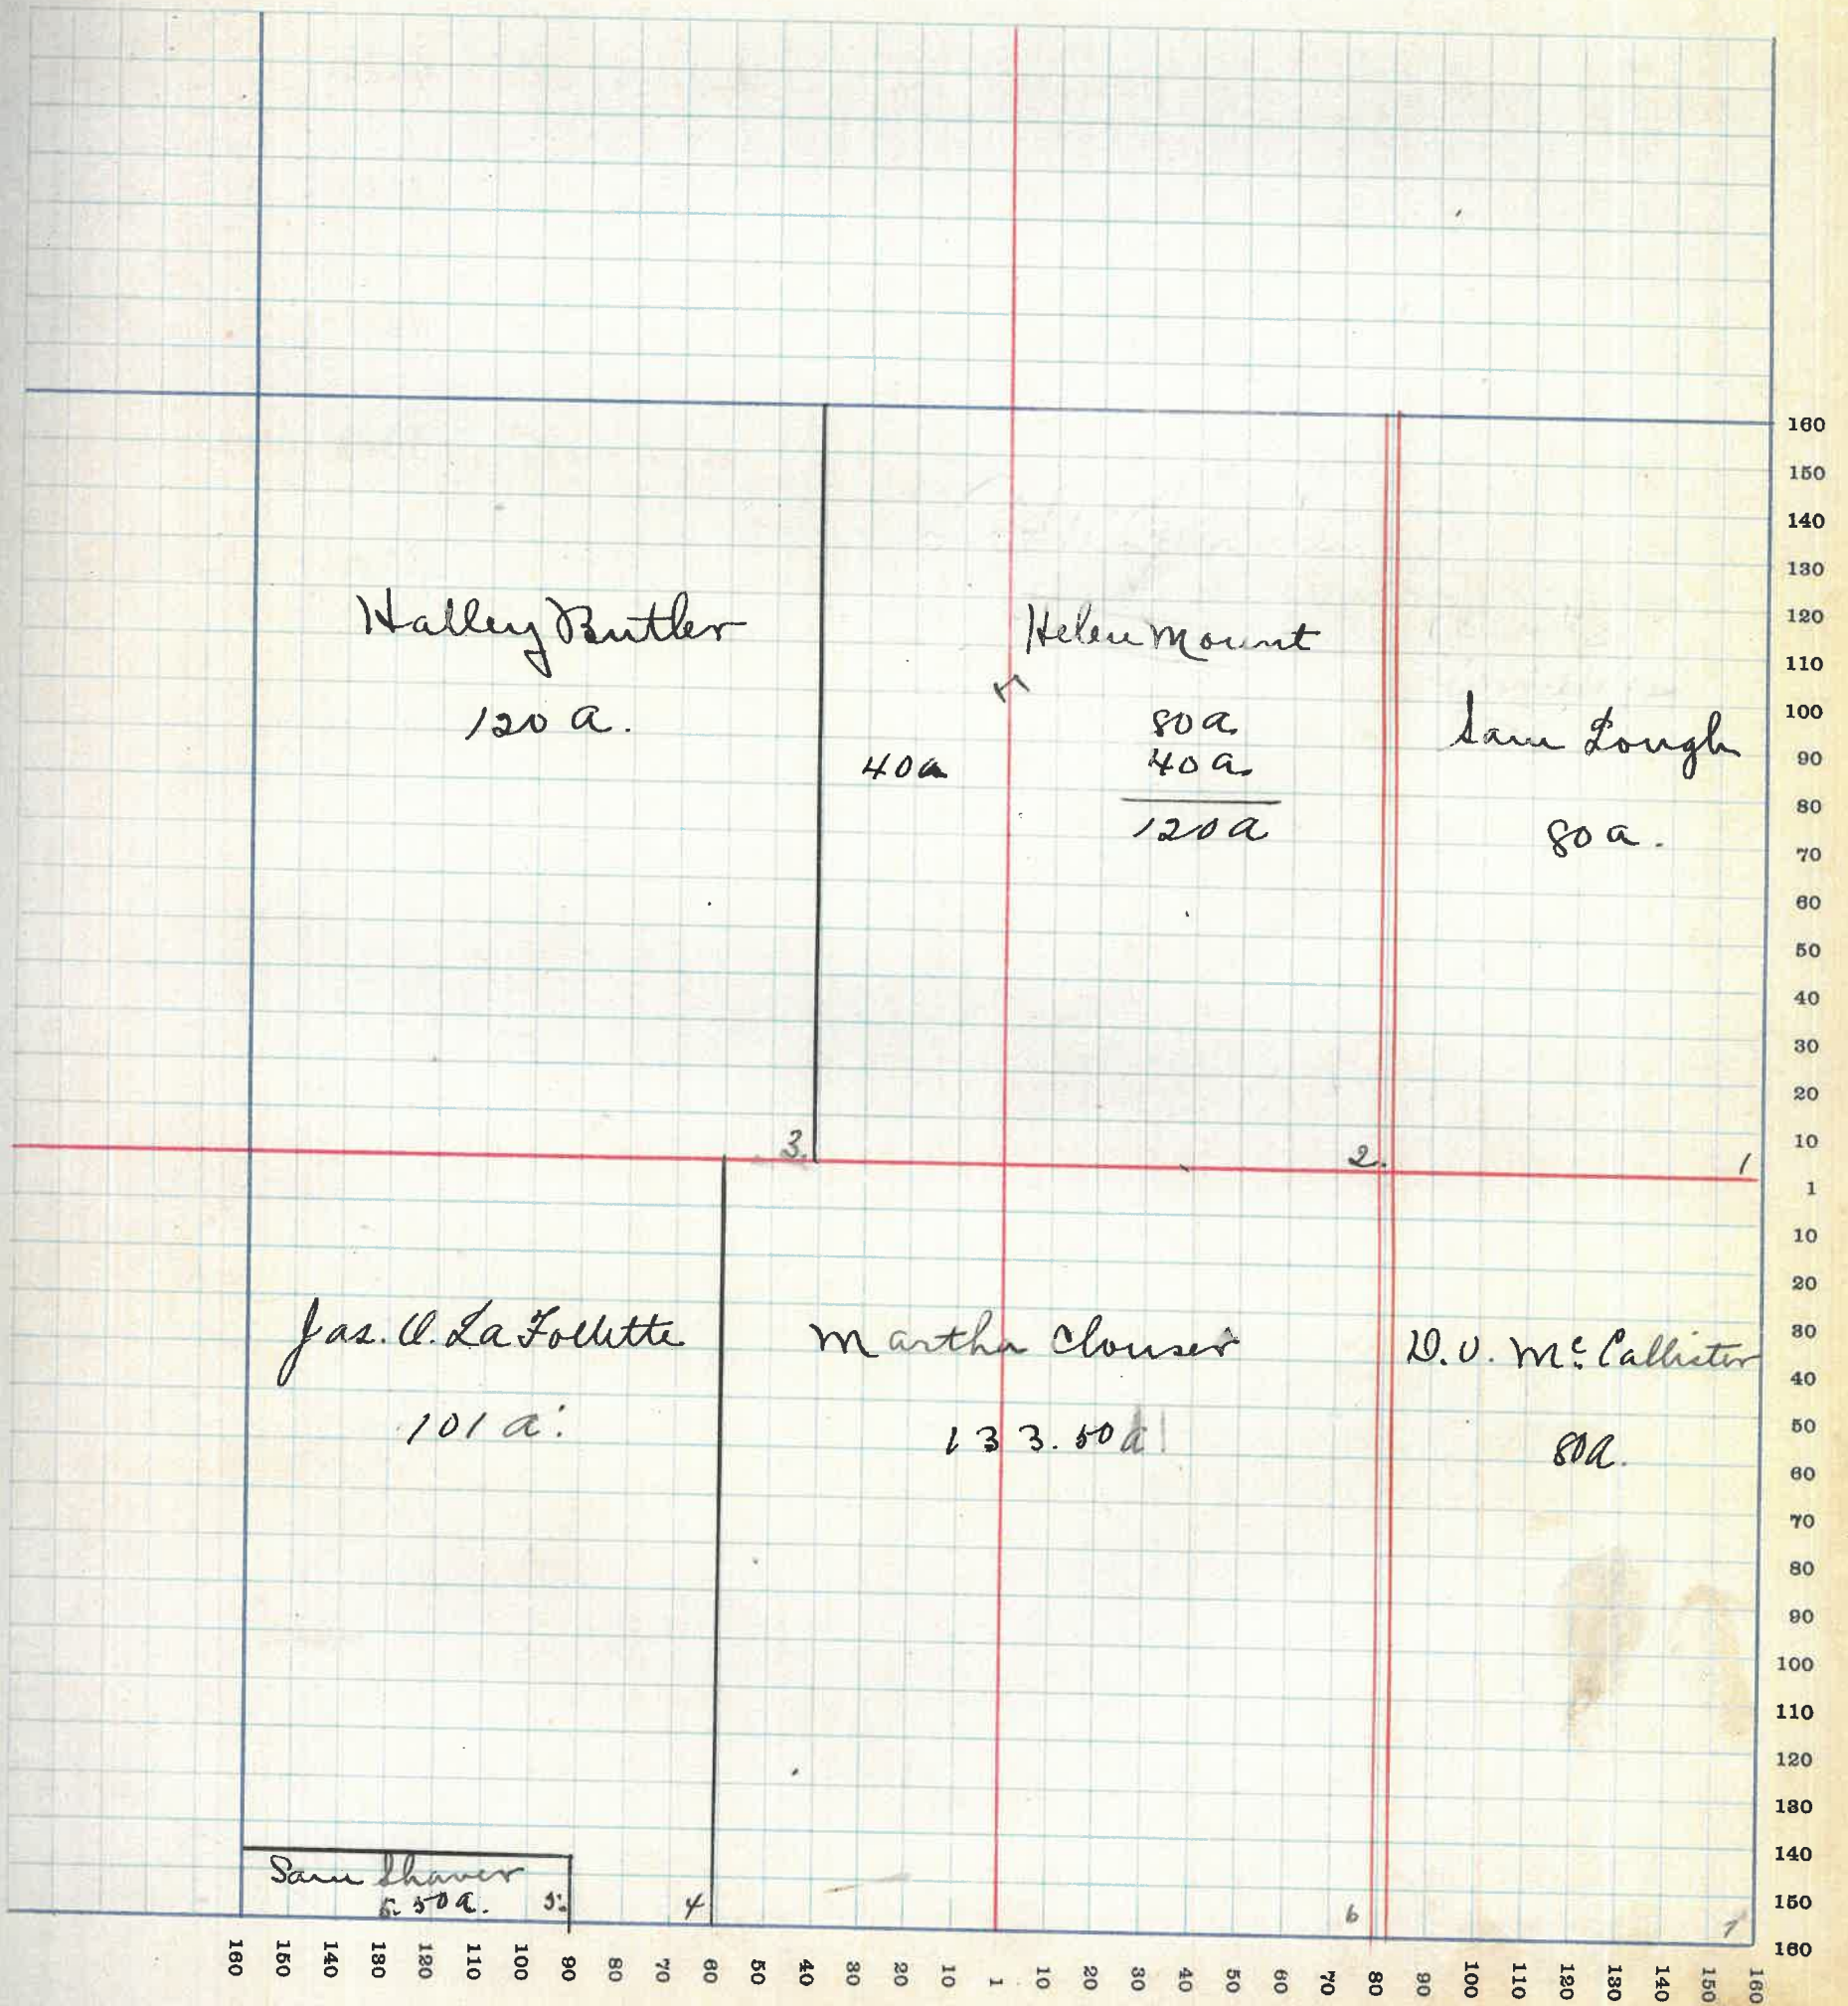 Halley Butler
120 a.
40a
Helen Mount
80a.
40a.
120a
Sam Lough
80a.
3.
2.
1
Jas. O. La Follette
101 a.
Martha Clouser
133.50 a
D.V. McCallister
80a.
Sam Shaver
5.50a.
5.
4
6
7
160
150
140
130
120
110
100
90
80
70
60
50
40
30
20
10
1
10
20
30
40
50
60
70
80
90
100
110
120
130
140
150
160
160 150 140 130 120 110 100 90 80 70 60 50 40 30 20 10 1 10 20 30 40 50 60 70 80 90 100 110 120 130 140 150 160